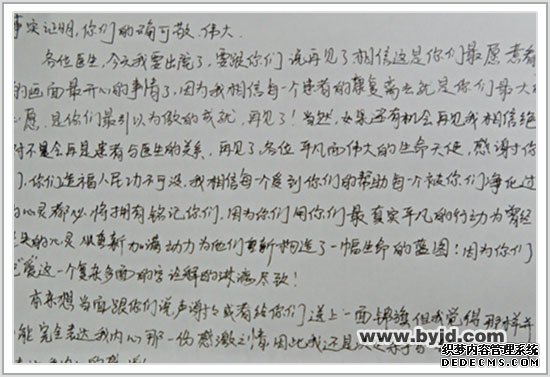 事实证明,你们的确可敬、伟大。
各位医生,今天我要出院了,要跟你们说再见了相信这是你们最愿意看
的画面最开心的事情了,因为我相信每一个患者的康复离去就是你们最大
心愿,是你们最引以为傲的成就,再见了!当然,如果还有机会再见我相信绝
对不是会再是患者与医生的关系,再见了各位平凡而伟大的生命天使,感谢你
们,你们造福人民功不可没,我相信每一个受到你们的帮助每一个被你们净化过
的心灵都必将拥有铭记你们,因为你们用你们最真实平凡的行动为曾经
的心灵从重新加满动力为他们重新构造了一幅生命的蓝图:因为你们
爱这一个复杂多面的字诠释的淋漓尽致!
本来想当面跟你们说声谢谢或者给你们送上一面锦旗但我觉得那样并
能完全表达我内心那一份感激之情因此我还是
www.byjd.com
织梦内容管理系统
DEDECMS.COM